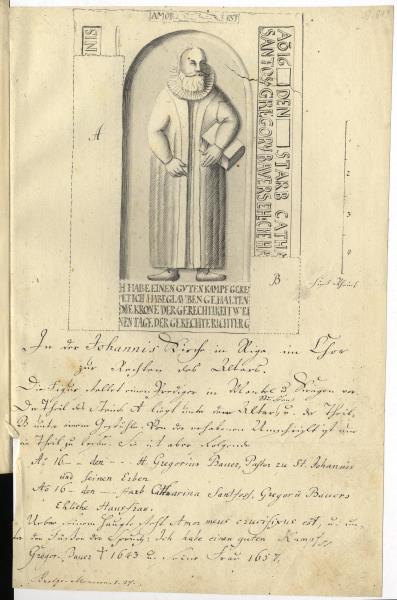 AMOR EST
SIN
AÕ 16 DEN STARB CATHA
SANTOS GREGORY BAVERS EHLICHE H
A
H HABE EINEN GVTEN KAMPF GEKE
ET ICH HABE GLAVBEN GEHALTEN
DIE KRONE DER GERECHTIKEIT WE
NEN TAGE, DER GERECHTE RICHTER G
B
1
2
3
4
5
In der Johannis Kirche in Riga im Chor
zur Rechten des Altars.
Die Figur stellet einen Prediger in Mantel u Kragen vor.
Der Theil des Steins A liegt unter dem Altar, u. der Theil
B unter einem Gestühle. Von der erhabenen Umschrift ist nur
ein Theil zu Sie ist aber folgende
Aº 16 — den — — H. Gregorius Bauer, Pastor zu St. Johannis
und seinen Erben.
Aº 16 — den — starb Catharina Santfoss, Gregorii Bauers
Ehliche Hausfrau.
Ueber seinem Haupte steht Amor meus crucifixus est, u. un-
ter den Füssen der Spruch: Ich habe einen guten Kampf
Gregor. Bauer † 1643 u. seine Frau 1657.